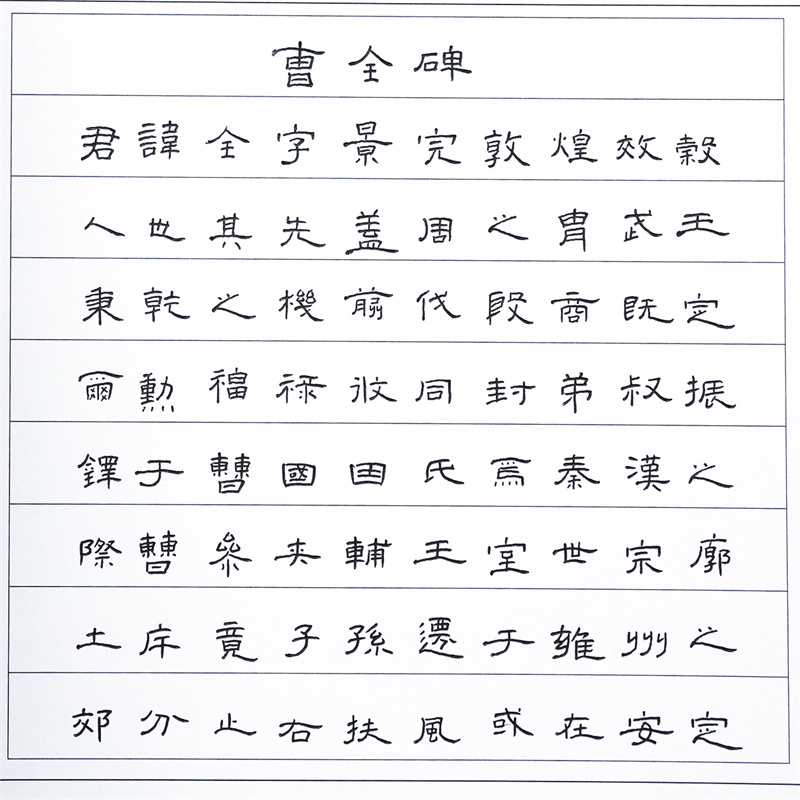 曹全碑
君諱全字景完敦煌效穀
人世其先蓋周之胄武王
秉乾之機翦伐殷商既定
爾勳福祿攸同封弟叔振
鐸于曹國因氏焉秦漢之
際曹參夾輔王室世宗廓
土斥竟子孫遷于雍州之
郊分止右扶風或在安定